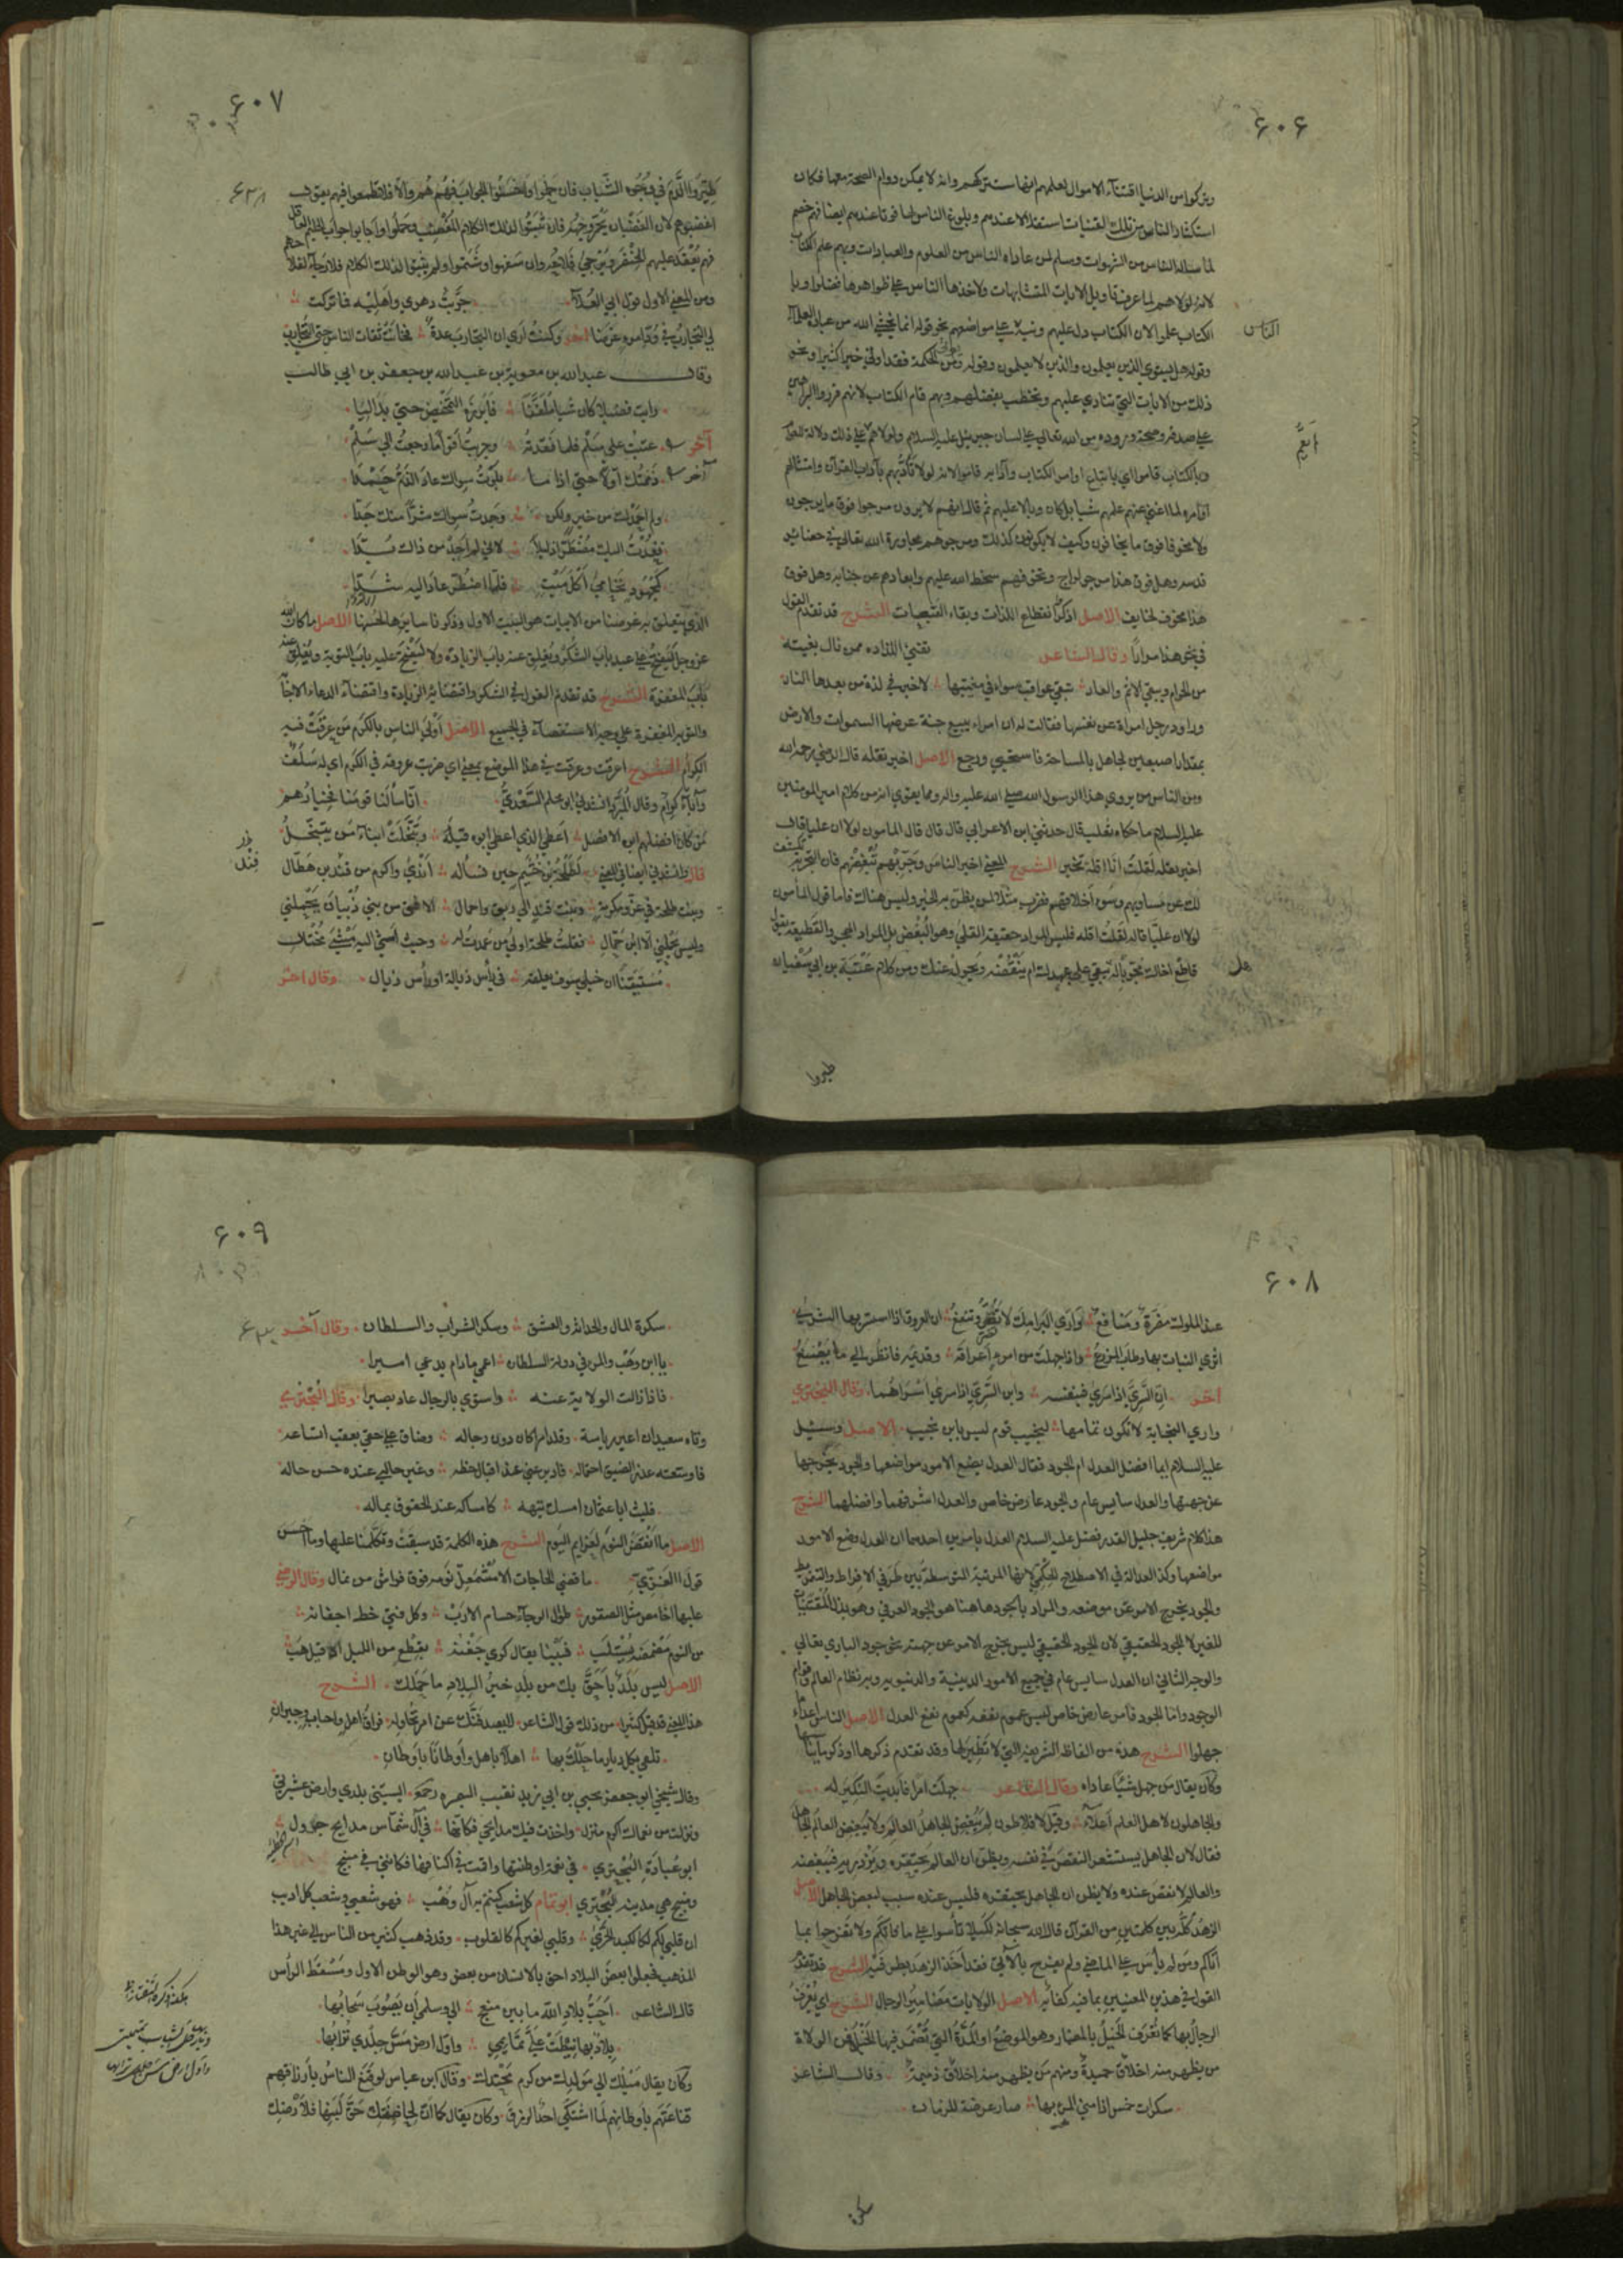 ۶۰۶
ويتركوا من الدنيا اقتناء الاموال لعلمهم انها ستتركهم وانه لا يمكن دوام الصحة معها فكان
استكثار الناس من تلك القنيات استقلالا عندهم وبلوغ الناس لها فوتا عندهم ايضا فهم خصم
لما سالمه الناس من الشهوات وسلم لمن عاداه الناس من العلوم والعبادات وبهم علم الكتاب
لانه لولاهم لما عرف تاويل الايات المتشابهات ولاخذها الناس على ظواهرها فضلوا وبا
الكتاب علموا لان الكتاب دل عليهم ونبه على مواضعهم نحو قوله انما يخشى الله من عباده العلماء
الناس
وقوله هل يستوي الذين يعلمون والذين لا يعلمون وقوله ومن الحكمة فقد اوتي خيرا كثيرا ونحو
ذلك من الايات التي تنادي عليهم وتخطب بفضلهم وبهم قام الكتاب لانهم قرروا البراهين
على صدقه وصحة وروده من الله تعالى على لسان جبرئيل عليه السلام ولولاهم على ذلك دلالة للعوام
وبالكتاب قاموا اي باتباع اوامر الكتاب وآدابه قاموا لانه لولا تأدبهم بآداب القرآن وامتثالهم
اوامره لما اغنى عنهم علمهم شيا بل كان وبالا عليهم ثم قال انهم لا يرون مرجوا فوق ما يرجون
ولا مخوفا فوق ما يخافون وكيف لا يكونون كذلك ومرجوهم مجاورة الله تعالى في حضاير
قدسه وهل فوق هذا مرجو لراج ومخوفهم سخط الله عليهم وابعادهم عن جنابه وهل فوق
هذا مخوف لخايف الاصل اذكروا انقطاع اللذات وبقاء التبعات الشرح قد تقدم القول
في نحو هذا مرارا وقال الشاعر تفنى اللذاذه ممن نال بغيته
من الحرام ويبقى الاثم والعار تبقى عواقب سوء في مغبتها لا خير في لذة من بعدها النار
وراود رجل امراة عن نفسها فقالت له ان امرا يبيع جنة عرضها السموات والارض
بمقدار اصبعين لجاهل بالمساحة فاستحيى ورجع الاصل اخبر تقله قال الرضي رحمه الله
ومن الناس من يروي هذا الرسول الله صلى الله عليه واله ومما يقوي انه من كلام امير المومنين
عليه السلام ما حكاه ثعلب قال حدثني ابن الاعرابي قال قال قال المامون لولا ان عليا قال
اخبر تقله لقلت انا اقله تخبر الشرح المعنى اخبر الناس وجربهم تبغضهم فان التجربة تكشف
لك عن مساويهم وسوء اخلاقهم فضرب مثلا لمن يظن به الخير وليس هناك فاما قول المامون
لولا ان عليا قاله لقلت اقله فليس المراد حقيقة القلى وهو البغض بل المراد الهجر والقطيعة يقول
قاطع اخاك مجربا له يبقى على عهدك ام ينقضه ويحول عنك ومن كلام عتبة بن ابي سفيان
طيروا
۶۰۷
طيروا الدم في وجوه الشباب فان حلموا واحسنوا الجواب فهم هم والا فلا تطمعوا فيهم يعني
اغضبوهم لان الغضبان يحمر وجهه فان ثبتوا لذلك الكلام المغضب وحملوا واجابوا جواب الحليم العاقل
فهم ممن يعقد عليهم الخنصر ويرجى فلاحهم وان سفهوا وشتموا ولم يثبتوا لذلك الكلام فلا رجاء لفلاحهم
ومن المعنى الاول قول ابي العلاء جربت دهري واهليه فما تركت
لي التجارب في ود امرء غرضا آخر وكنت ارى ان التجارب عدة فخانت ثقات الناس حتى التجارب
وقال عبد الله بن معوية بن عبد الله بن جعفر بن ابي طالب
رايت فضيلا كان شيا ملففا فابرزه التمحيص حتى بدا ليا
آخر عتبت على سلم فلما فقدته وجربت اقواما رجعت الى سلم
آخر ذممتك اولا حتى اذا ما بلوت سواك عاد الذم حمدا
ولم احمدك من خير ولكن وجدت سواك شرا منك جدا
فعدت اليك مضطرا ذليلا لاني لم اجد من ذاك بدا
كمجهود تحامى اكل ميت فلما اضطر عاد اليه شدا
الذي يتعلق به غرضنا من الابيات هو البيت الاول وذكرنا سايرها لحسنها الاصل ما كان الله
عز وجل ليفتح على عبد باب الشكر ويغلق عنه باب الزيادة ولا ليفتح عليه باب التوبة ويغلق عنه
باب المغفرة الشرح قد تقدم القول في الشكر واقتضائه الزيادة واقتضاء الدعاء الاجابة
والتوبة المغفرة على وجه الاستقصاء في الجميع الاصل اولى الناس بالكرم من عرقت فيه
الكرام الشرح اعرقت وعرقت في هذا الموضع بمعنى اي ضربت عروقه في الكرم اي له سلف
وآباء كرام وقال المبرد انشدني ابو محلم السعدي انا سالنا قومنا فخيارهم
من كان افضلهم ابوه الافضل اعطى الذي اعطى ابوه قبله وتبخلت ابناء من يتبخل
قال وانشدني ايضا في المعنى لطلحة بن خثيم حين تساله اندى واكرم من فند بن هطال
وبيت طلحة في عز ومكرمة وبيت فند الى ربق واحمال الا فتى من بني ذبيان يحملني
وليس يحملني الا ابن حمال فقلت طلحة اولى من عمدت له وجئت امشي اليه مشي مختال
مستيقنا ان حبلي سوف يعلقه في راس ذيالة او راس ذيال وقال آخر
۶۰۸
عند الملوك مضرة ومنافع وارى البرامك لا تضر وتنفع ان العروق اذا استسر بها الثرى
اثرى النبات بها وطاب المزرع واذا جهلت من امرء اعراقه وقديمه فانظر الى ما يصنع
آخر ان السري اذا سرى فبنفسه وابن السري اذا سرى اسراهما وقال البحتري
وارى النجابة لا تكون تمامها لنجيب قوم ليس بابن نجيب الاصل وسئل
عليه السلام ايما افضل العدل ام الجود فقال العدل يضع الامور مواضعها والجود يخرجها
عن جهتها والعدل سايس عام والجود عارض خاص والعدل اشرفهما وافضلهما الشرح
هذا كلام شريف جليل القدر فضل عليه السلام العدل بامرين احدهما ان العدل وضع الامور
مواضعها وكذا العدالة في الاصطلاح الحكمي لانها المرتبة المتوسطة بين طرفي الافراط والتفريط
والجود يخرج الامر عن موضعه والمراد بالجود هاهنا هو الجود العرفي وهو بذل المقتنيات
للغير لا الجود الحقيقي لان الجود الحقيقي ليس يخرج الامر عن جهته نحو جود الباري تعالى
والوجه الثاني ان العدل سايس عام في جميع الامور الدينية والدنيوية وبه نظام العالم وقوام
الوجود واما الجود فامر عارض خاص ليس عموم نفعه كعموم نفع العدل الاصل الناس اعداء ما
جهلوا الشرح هذه من الفاظه الشريفة التي لا نظير لها وقد تقدم ذكرها وذكر ما يناسبها
وكان يقال من جهل شيئا عاداه وقال الشاعر جهلت امرا فابديت النكير له
والجاهلون لاهل العلم اعداء وقيل لافلاطون لم يبغض الجاهل العالم ولا يبغض العالم الجاهل
فقال لان الجاهل يستشعر النقص في نفسه ويظن ان العالم يحتقره ويزدريه فيبغضه
والعالم لا نقص عنده ولا يظن ان الجاهل يحتقره فليس عنده سبب لبغض الجاهل الاصل
الزهد كله بين كلمتين من القرآن قال الله سبحانه لكيلا تأسوا على ما فاتكم ولا تفرحوا بما
آتاكم ومن لم يأس على الماضي ولم يفرح بالآتي فقد اخذ الزهد بطرفيه الشرح قد تقدم
القول في هذين المعنيين بما فيه كفاية الاصل الولايات مضامير الرجال الشرح اي تعرف
الرجال بها كما تعرف الخيل بالمضمار وهو الموضع او المدة التي تضمر فيها الخيل فمن الولاة
من يظهر منه اخلاق حميدة ومنهم من يظهر منه اخلاق ذميمة وقال الشاعر
سكرات خمس اذا مني المرء بها صار عرضة للزمان
سكرة
۶۰۹
سكرة المال والحداثة والعشق وسكر الشراب والسلطان وقال آخر
يا ابن وهب والمرء في دولة السلطان اعمى ما دام يدعى اميرا
فاذا زالت الولاية عنه واستوى بالرجال عاد بصيرا وقال البحتري
وتاه سعيد ان اعير رياسة وقلد امرا كان دون رجاله وضاق على حقي بعقب اتساعه
فاوسعته عذرا لضيق احتماله فادبر عني عند اقبال حظه وغير حالي عنده حسن حاله
فليت ابا عثمان امسك تيهه كامساكه عند الحقوق بماله
الاصل ما انقض النوم لعزايم اليوم الشرح هذه الكلمة قد سبقت وتكلمنا عليها وما احسن
قول المعري ما قضى الحاجات الا مشمعل نومه فوق فراش من نمال وقال الرضي
عليها اخامص مثل الصقور طوال الرجاء جسام الارب وكل فتى حظ اجفانه
من النوم مضمضة تستلب فبينا يقال كرى جفنه بقطع من الليل الا قيل هب
الاصل ليس بلد باحق بك من بلد خير البلاد ما حملك الشرح
هذا المعنى قد قيل كثيرا من ذلك قول الشاعر لا يصدفنك عن امر تحاوله فراق اهل واحباب وجيران
تلقى بكل ديار ما حللت بها اهلا باهل واوطانا باوطان
وقال شيخي ابو جعفر يحيى بن ابي زيد نقيب البصره رحمه انسيتني بلدي وارض عشيرتي
ونزلت من نعماك اكرم منزل واخذت فيك مدايحي فكانها في آل شماس مدايح جرول
ابو عبادة البحتري في نعمة اوطنتها واقمت في اكنافها فكانني في منبج
ومنبج هي مدينة البحتري ابو تمام كل شعب كنتم به آل وهب فهو شعبي وشعب كل اديب
ان قلبي لكم لكالكبد الحرى وقلبي لغيركم كالقلوب وقد ذهب كثير من الناس الى غير هذا
المذهب فجعلوا بعض البلاد احق بالانسان من بعض وهو الوطن الاول ومسقط الراس
قال الشاعر احب بلاد الله ما بين منبج الي وسلمى ان يصوب سحابها
بلاد بها نيطت علي تمايمي واول ارض مس جلدي ترابها
وكان يقال ميلك الى مولدك من كرم محتدك وقال ابن عباس لو قنع الناس بارزاقهم
قناعتهم باوطانهم لما اشتكى احد الرزق وكان يقال كما ان لحاضنتك حق لبنها فلارضك